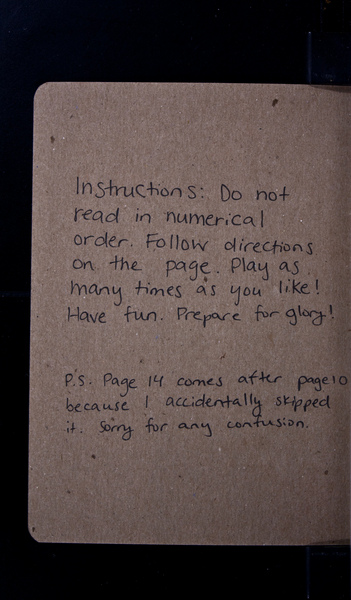 Instructions: Do not
read in numerical
order. Follow directions
on the page. Play as
many times as you like!
Have fun. Prepare for glory!
P.S. Page 14 comes after page 10
because I accidentally skipped
it. Sorry for any confusion.